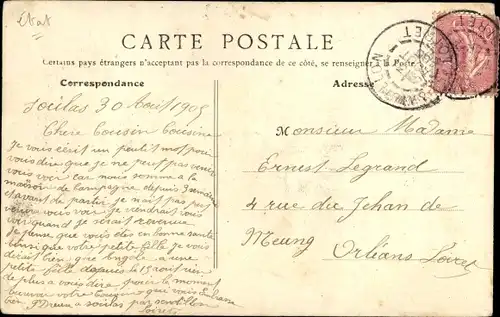 Etat
CARTE POSTALE
Certains pays étrangers n'acceptant pas la correspondance de ce côté, se renseigner à la Poste
Correspondance
Adresse
Socilas 30 Août 1905
Chère Cousin Cousine
Je vous écrit un peutit mot pour
vous dire que je ne peut pas venir
vous voir car nous somme a la
maison de Campagne depuis 3 semaine
et avant de partir je n'ait pas peut
vous voir je viendrait vous
voir quand je serait revenue
Je pense que vous etes en bonne santé
ainsi que votre petite fille je vous
dirait bien que Angele a une
petite fille depuis le 15 aout rien
de plus a vous dire pour le moment
recevoir votre Cousine qui vous embrasse
bien a socilas par
Loiret
Monsieur Madame
Ernest Legrand
4 rue du Jehan de
Meung Orléans Loiret